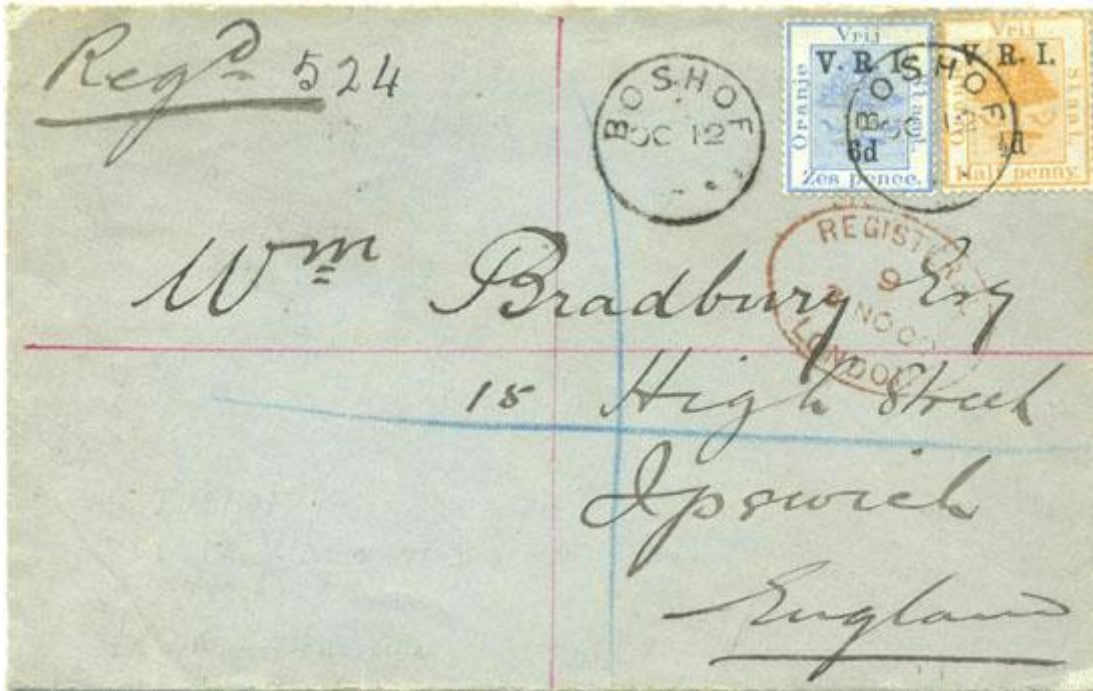 Regd 524
BOSHOF
OC 12
Vrij
V. R. I.
Oranje Staat.
6d
Zes pence.
Vrij
V. R. I.
Oranje Staat.
½d
Half penny.
BOSHOF
OC 12
REGISTERED
9
NO 00
LONDON
Wm Bradbury Esq
15 High Street
Ipswich
England